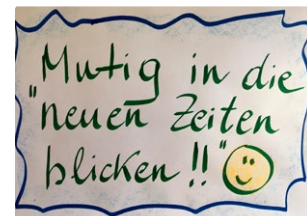 Mutig in die
"neuen Zeiten"
blicken !!